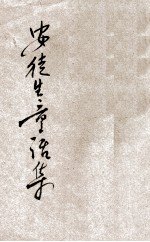 安徒生童话集